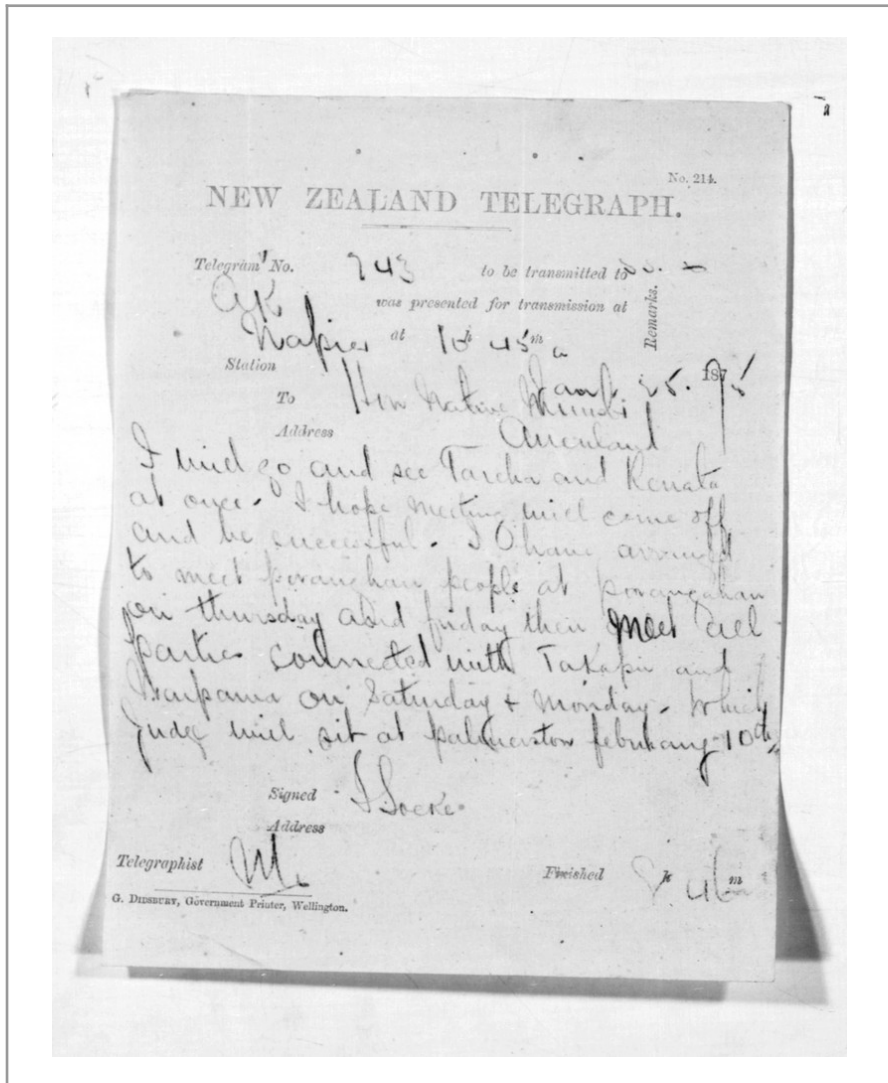 No. 214.
NEW ZEALAND TELEGRAPH.
Telegram No. 743 to be transmitted to
Remarks.
AK was presented for transmission at
Napier at 10h 45m a
Station Jany 25. 1875
To Hon Native
Address Auckland
I will go and see Tareha and Renata
at once. I hope meeting will come off
and be successful. I have
to meet porangahau people at porangahau
on thursday and friday then meet all
parties connected with Takapu and
on Saturday & Monday. Which
Judge will sit at palmerston february 10th
Signed S Locke
Address
Telegraphist
Finished h 46m
G. DIDSBURY, Government Printer, Wellington.